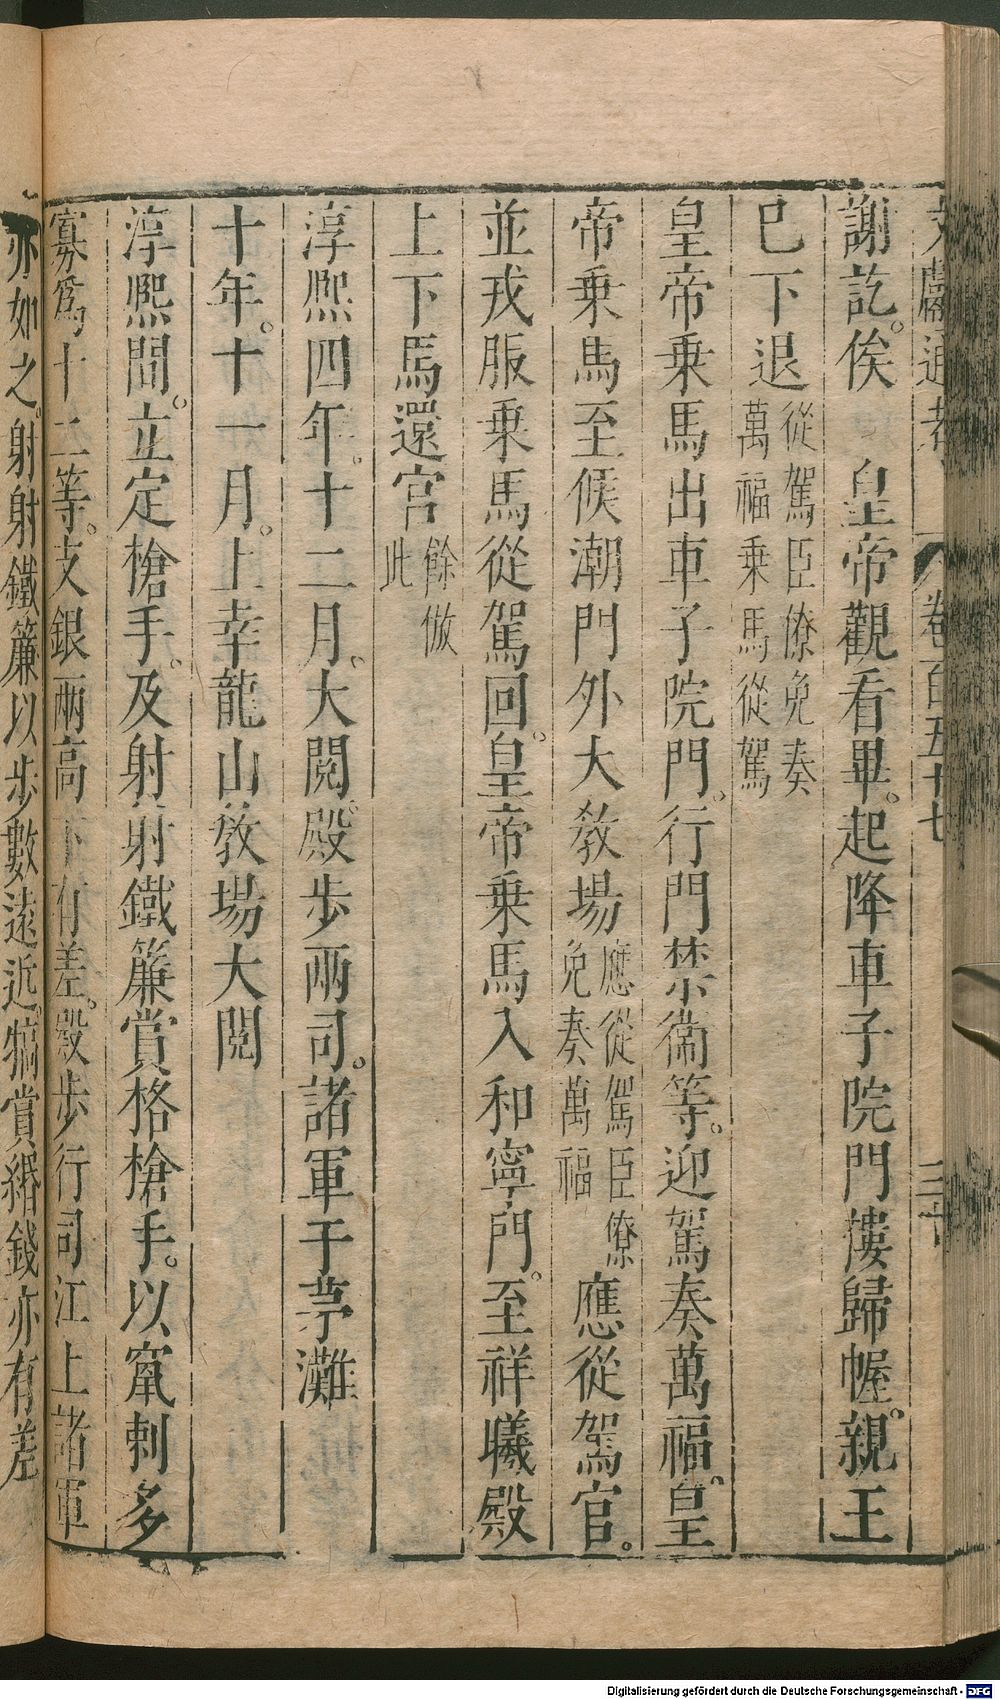 文獻通考 卷百五十七 三十
謝訖。俟 皇帝觀看畢。起降車子院門樓歸幄。親王
已下退從駕臣僚免奏萬福乗馬從駕
皇帝乗馬出車子院門。行門禁衞等。迎駕奏萬福。皇
帝乗馬至候潮門外大教場應從駕臣僚免奏萬福應從駕官。
並戎服乗馬從駕回。皇帝乗馬入和寧門。至祥曦殿
上下馬還宫餘倣此
淳熙四年。十二月。大閱。殿步兩司。諸軍于茅灘
十年。十一月。上幸龍山教場大閱
淳熙間。立定槍手。及射射鐵簾賞格槍手。以竄刺多
寡爲十二等。支銀兩高下有差。殿步行司江上諸軍
亦如之。射射鐵簾以步數遠近。犒賞緡錢亦有差
Digitalisierung gefördert durch die Deutsche Forschungsgemeinschaft - DFG